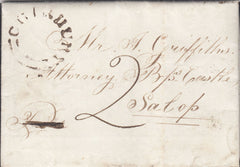 Mr. A. Griffiths
Attorney Bps. Castle
2 Salop